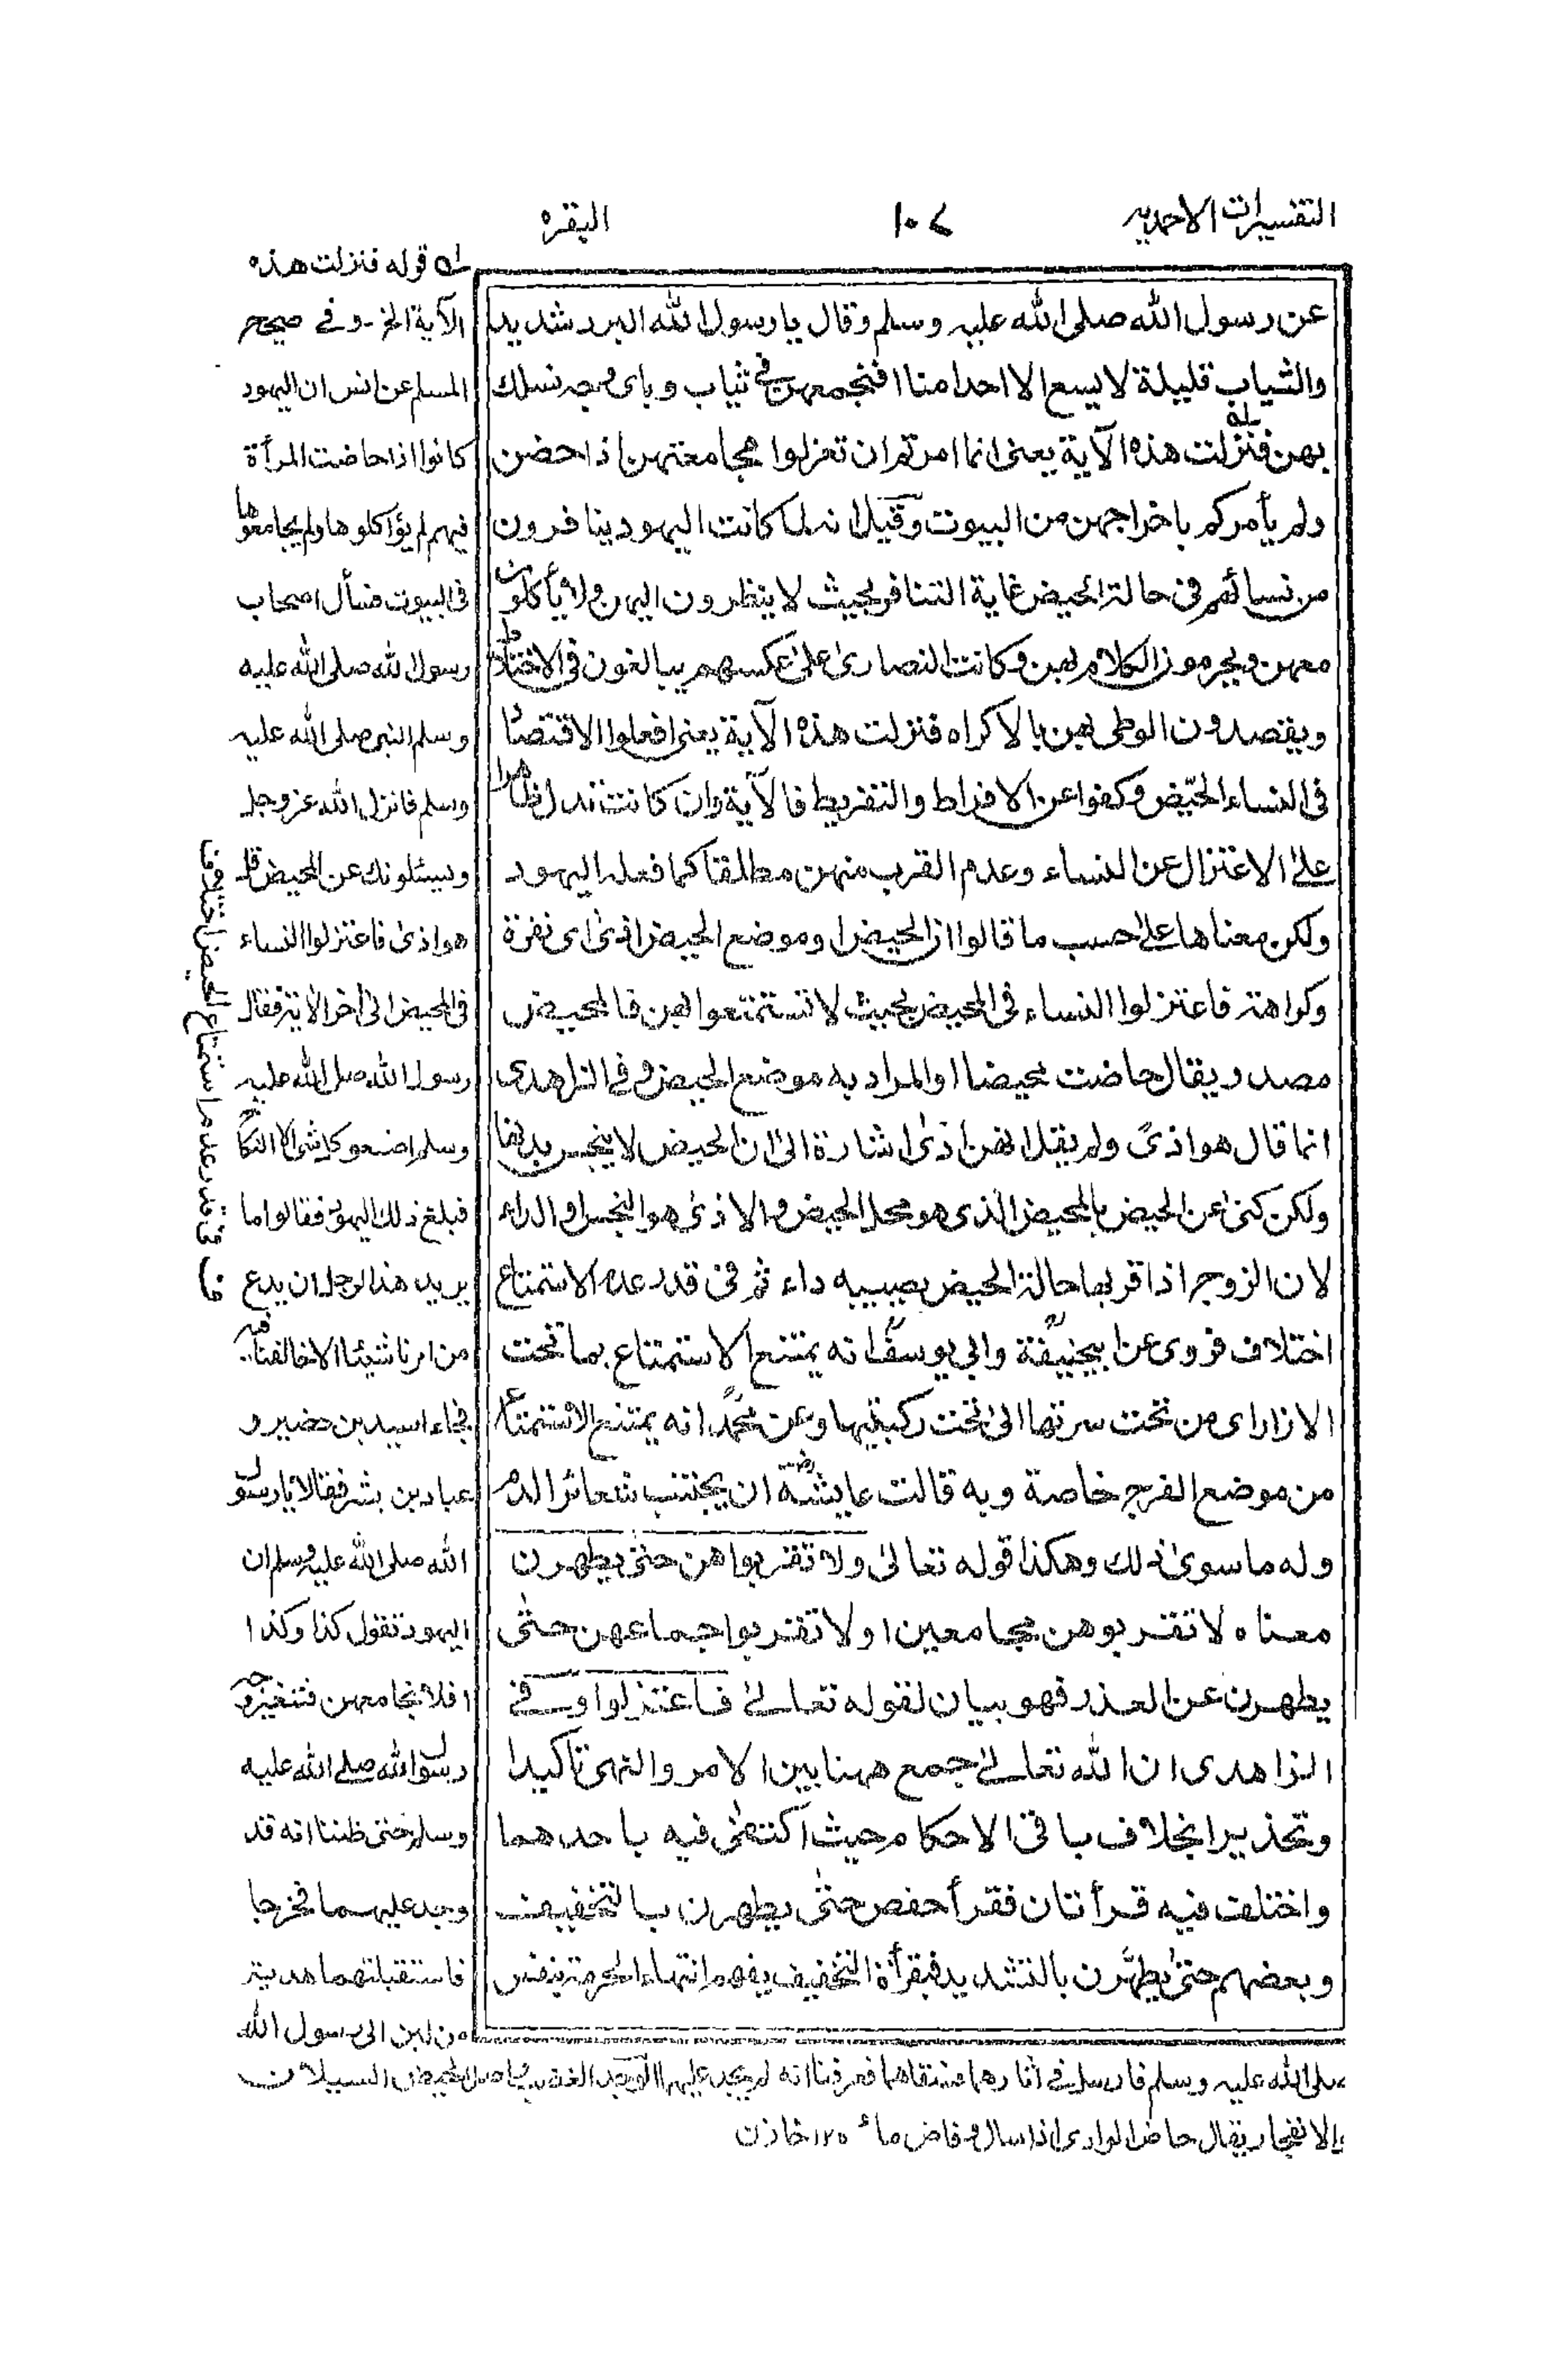 التفسيرات الاحمديه
١٠٧
البقره
عن رسول الله صلى الله عليه وسلم وقال يا رسول الله البرد شديد
والثياب قليلة لا يسع الا احدا منا افنجمعهن في ثياب وباى وجه نسلك
بهن فنزلت هذه الآية يعنى انما امرتم ان تعزلوا مجامعتهن اذا حضن
ولم يأمركم باخراجهن من البيوت وقيل انه لما كانت اليهود ينافرون
من نسائهم فى حالة الحيض غاية التنافر بحيث لا ينظرون اليهن ولا يأكلون
معهن ويحرمون الكلام بهن وكانت النصارىٰ علىٰ عكسهم يبالغون فى الاختلاط
ويقصدون الوطى بهن بالاكراه فنزلت هذه الآية يعنى افعلوا الاقتصاد
فى النساء الحيّض وكفوا عن الافراط والتفريط فالآية وان كانت تدل ظاهرا
علىٰ الاعتزال عن النساء وعدم القرب منهن مطلقا كما فعله اليهود
ولكن معناها علىٰ حسب ما قالوا ان الحيض او موضع الحيض اذىٰ اى نفرة
وكراهة فاعتزلوا النساء فى المحيض بحيث لا تستمتعوا بهن فالمحيض
مصدر يقال حاضت محيضا او المراد به موضع الحيض وفى الزاهدى
انما قال هو اذىً ولم يقل هن اذىٰ اشارة الىٰ ان الحيض لا ينجس بدنها
ولكن كنىٰ عن الحيض بالمحيض الذى هو محل الحيض والاذىٰ هو النجس او الداء
لان الزوج اذا قربها حالة الحيض يصيبه داء ثم فى قدر عدم الاستمتاع
اختلاف فروى عن ابيحنيفة وابى يوسف انه يمتنع الاستمتاع بما تحت
الازار اى من تحت سرتها الىٰ تحت ركبتيها وعن محمد انه يمتنع الاستمتاع
من موضع الفرج خاصة وبه قالت عايشة ان يجتنب شعائر الدم
وله ما سوىٰ ذلك وهكذا قوله تعالىٰ ولا تقربوا هن حتىٰ يطهرن
معناه لا تقربوهن مجامعين او لا تقربوا جماعهن حتىٰ
يطهرن عن العذر فهو بيان لقوله تعالىٰ فاعتزلوا وفى
الزاهدى ان الله تعالىٰ جمع ههنا بين الامر والنهى تاكيدا
وتحذيرا بخلاف باقى الاحكام حيث اكتفىٰ فيه باحدهما
واختلفت فيه قرأتان فقرأ حفص حتىٰ يطهرن بالتخفيف
وبعضهم حتىٰ يطّهّرن بالتشديد فبقرأة التخفيف يفهم انتهاء الحرمة بنفس
له قوله فنزلت هذه
الآية الخ ـ وفى صحيح
المسلم عن انس ان اليهود
كانوا اذا حاضت المرأة
فيهم لم يؤاكلوها ولم يجامعوها
فى البيوت فسأل اصحاب
رسول الله صلى الله عليه
وسلم النبى صلى الله عليه
وسلم فانزل الله عز وجل
ويسئلونك عن المحيض قل
هو اذىٰ فاعتزلوا النساء
فى المحيض الىٰ اخر الاية فقال
رسول الله صلى الله عليه
وسلم اصنعوا كل شئ الا النكاح
فبلغ ذلك اليهود فقالوا ما
يريد هذا الرجل ان يدع
من امرنا شيئا الا خالفنا فيه
فجاء اسيد بن حضير و
عباد بن بشر فقالا يا رسول
الله صلى الله عليه وسلم ان
اليهود تقول كذا وكذا
افلا نجامعهن فتغير وجه
رسول الله صلے الله عليه
وسلم حتى ظننا انه قد
وجد عليهما فخرجا
فاستقبلتهما هدية
من لبن الى رسول الله
صلى الله عليه وسلم فارسل فى اثارهما فسقاهما فعرفنا انه لم يجد عليهما الوجد الغضب اصل الحيض السيلان
والانفجار يقال حاض الوادى اذا سال وفاض ماءه ١٢ خازن
فى قدر عدم استمتاع الحيض اختلاف